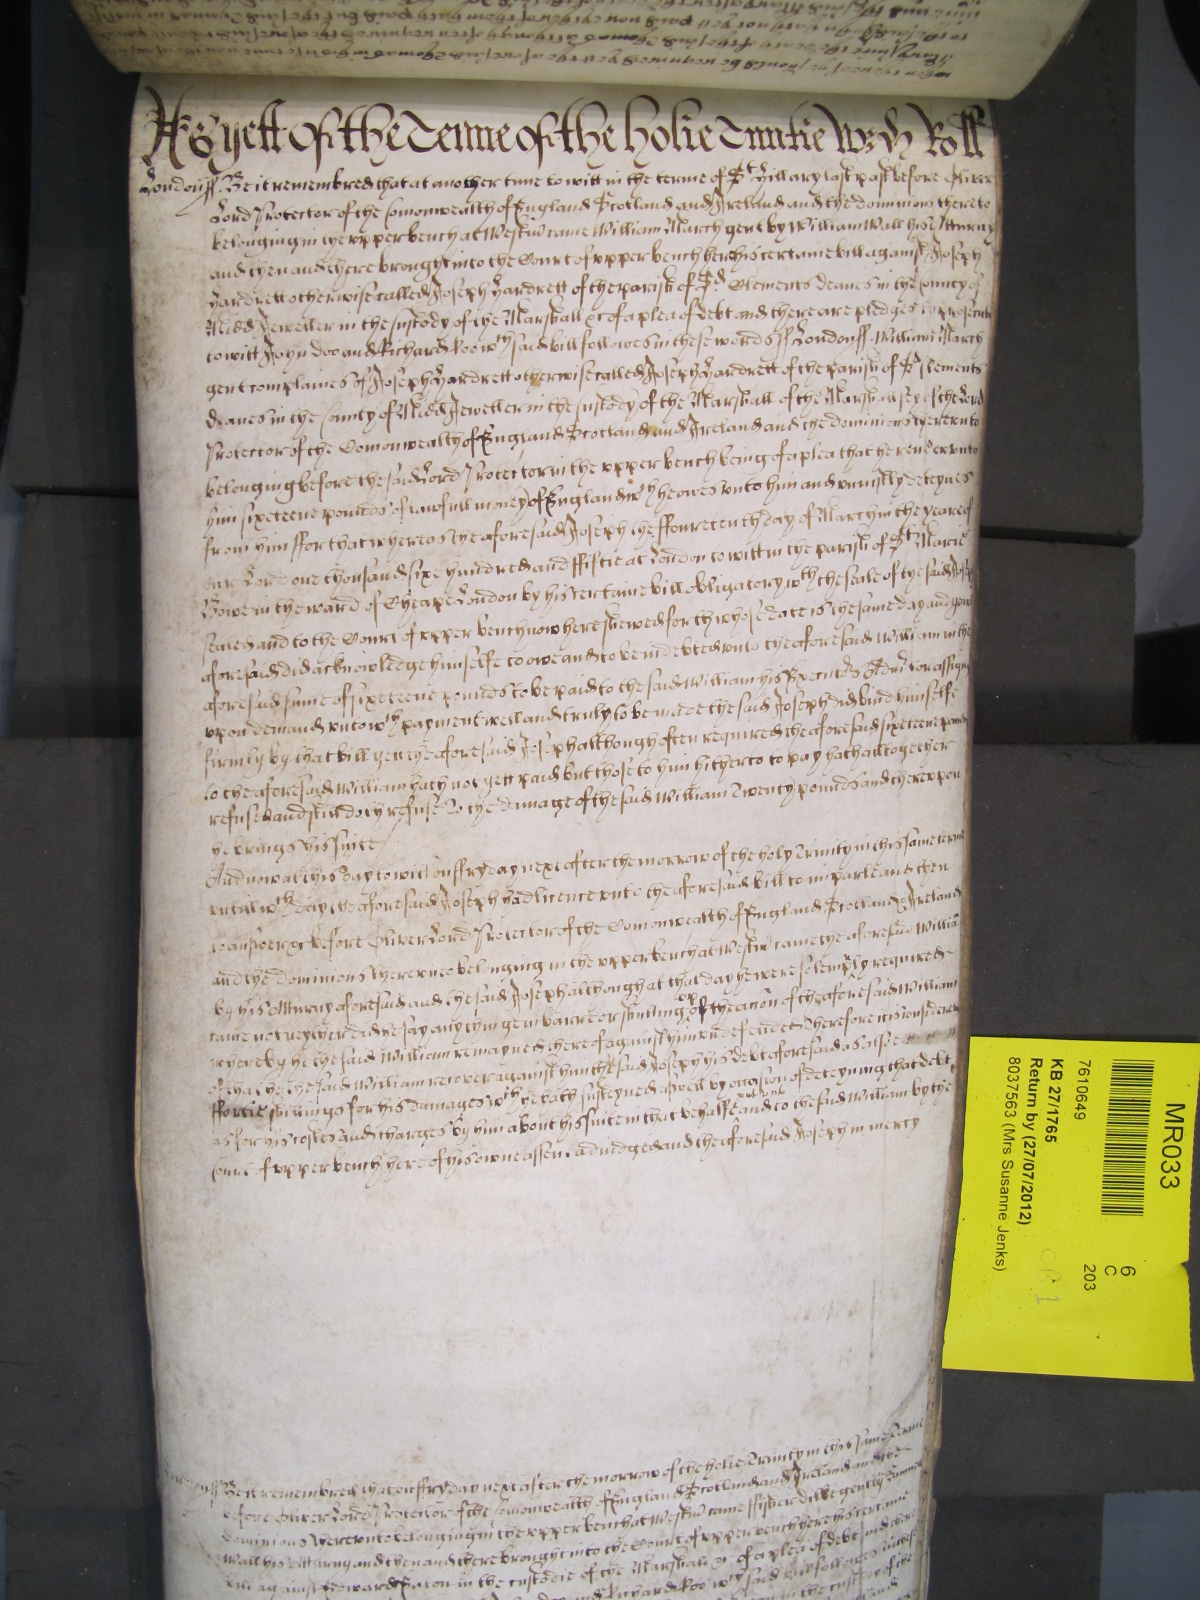 As yett Of the Terme of the holie Trinitie Roll
London ss. Be it remembred that at another time to witt in the terme of St Hillary last past before Oliver
Lord Protector of the Comonwealth of England Scotland and Ireland and the dominions thereto
belonging in the vpper bench at Westm came William March gent by William Wall his Atturny
and then and there brought into the Court of vpper bench here his certaine bill against Joseph
Yardrett otherwise called Joseph Yardrett of the parish of St Clements Deanes in the County of
Midd Jeweller in the custody of the Marshall &c of a plea of debt and there are pledges to prosecute
to witt John Doo and Richard Roo wch said bill followes in these words ss London ss. William March
gent complaines of Joseph Yardrett otherwise called Joseph Yardrett of the parish of St Clements
Deanes in the County of Midd Jeweller in the custody of the Marshall of the Marshallsey of the Lord
Protector of the Comonwealth of England Scotland and Ireland and the dominions therevnto
belonging before the said Lord Protector in the vpper bench being of a plea that he render vnto
him sixeteene pounds of lawfull money of England wch he owes vnto him and vniustly deteynes
from him ffor that whereas the aforesaid Joseph the ffoureteenth day of March in the yeare of
our Lord one thousand sixe hundred and ffiftie at London to witt in the parish of St Marie
Bowe in the ward of Cheape London by his certaine bill obligatory wth the seale of the said Joseph
sealed and to the Court of vpper bench now here shewed forth whose date is the same day and yeare
aforesaid did acknowledge himselfe to owe and to be indebted vnto the aforesaid William in the
aforesaid sume of sixeteene pounds to be paid to the said William his Executrs Admrs or assignes
vpon demand vnto wch payment well and truly to be made the said Joseph did bind himselfe
firmly by that bill yett the aforesaid Joseph although often required the aforesaid sixeteene pounds
to the aforesaid William hath not yett paid but those to him hitherto to pay hath alltogether
refused and still doth refuse To the damage of the said William Twenty pounds and therevpon
he brings his suite
And now at this day to witt on ffryday next after the morrow of the holy Trinity in this same terme
vntill wch day the aforesaid Joseph had licence vnto the aforesaid bill to imparle and then
to answer &c before Oliver Lord Protector of the Comonwealth of England Scotland & Ireland
and the dominions therevnto belonging in the vpper bench at Westm came the aforesaid William
by his Atturny aforesaid and the said Joseph although at that day he were solemply required
came not neyther did he say any thing in barre or of the accon of the aforesaid William
whereby he the said William remayneth thereof against him vndefended Therefore it is considered
that he the said William recover against him the said Joseph his debt aforesaid as alsoe
ffortie shillings for his damages wch he hath susteyned aswell by occasion of deteyning that debt
as for his costes and charges by him about his suite in that behalfe and to the said William by the
Court of vpper bench here of his owne assent adiudged and the aforesaid Joseph in mercy
ss Be it remembred that on ffryday next after the morrow of the holie Trinity in this same Terme
before Oliver Lord Protector of the Comonwealth of England Scotland and Ireland and the
dominions therevnto belonging in the vpper bench at Westm came gent by
Wall his Atturny and then and there brought into the Court of vpper bench here his certaine
bill against Edward in the custodie of the Marshall &c of a plea of debt and there
and Richard Roo wch said bill followes
in the custody of the
MR033
6
C
203
7610649
KB 27/1765
Return by (27/07/2012)
8037563 (Mrs Susanne Jenks)